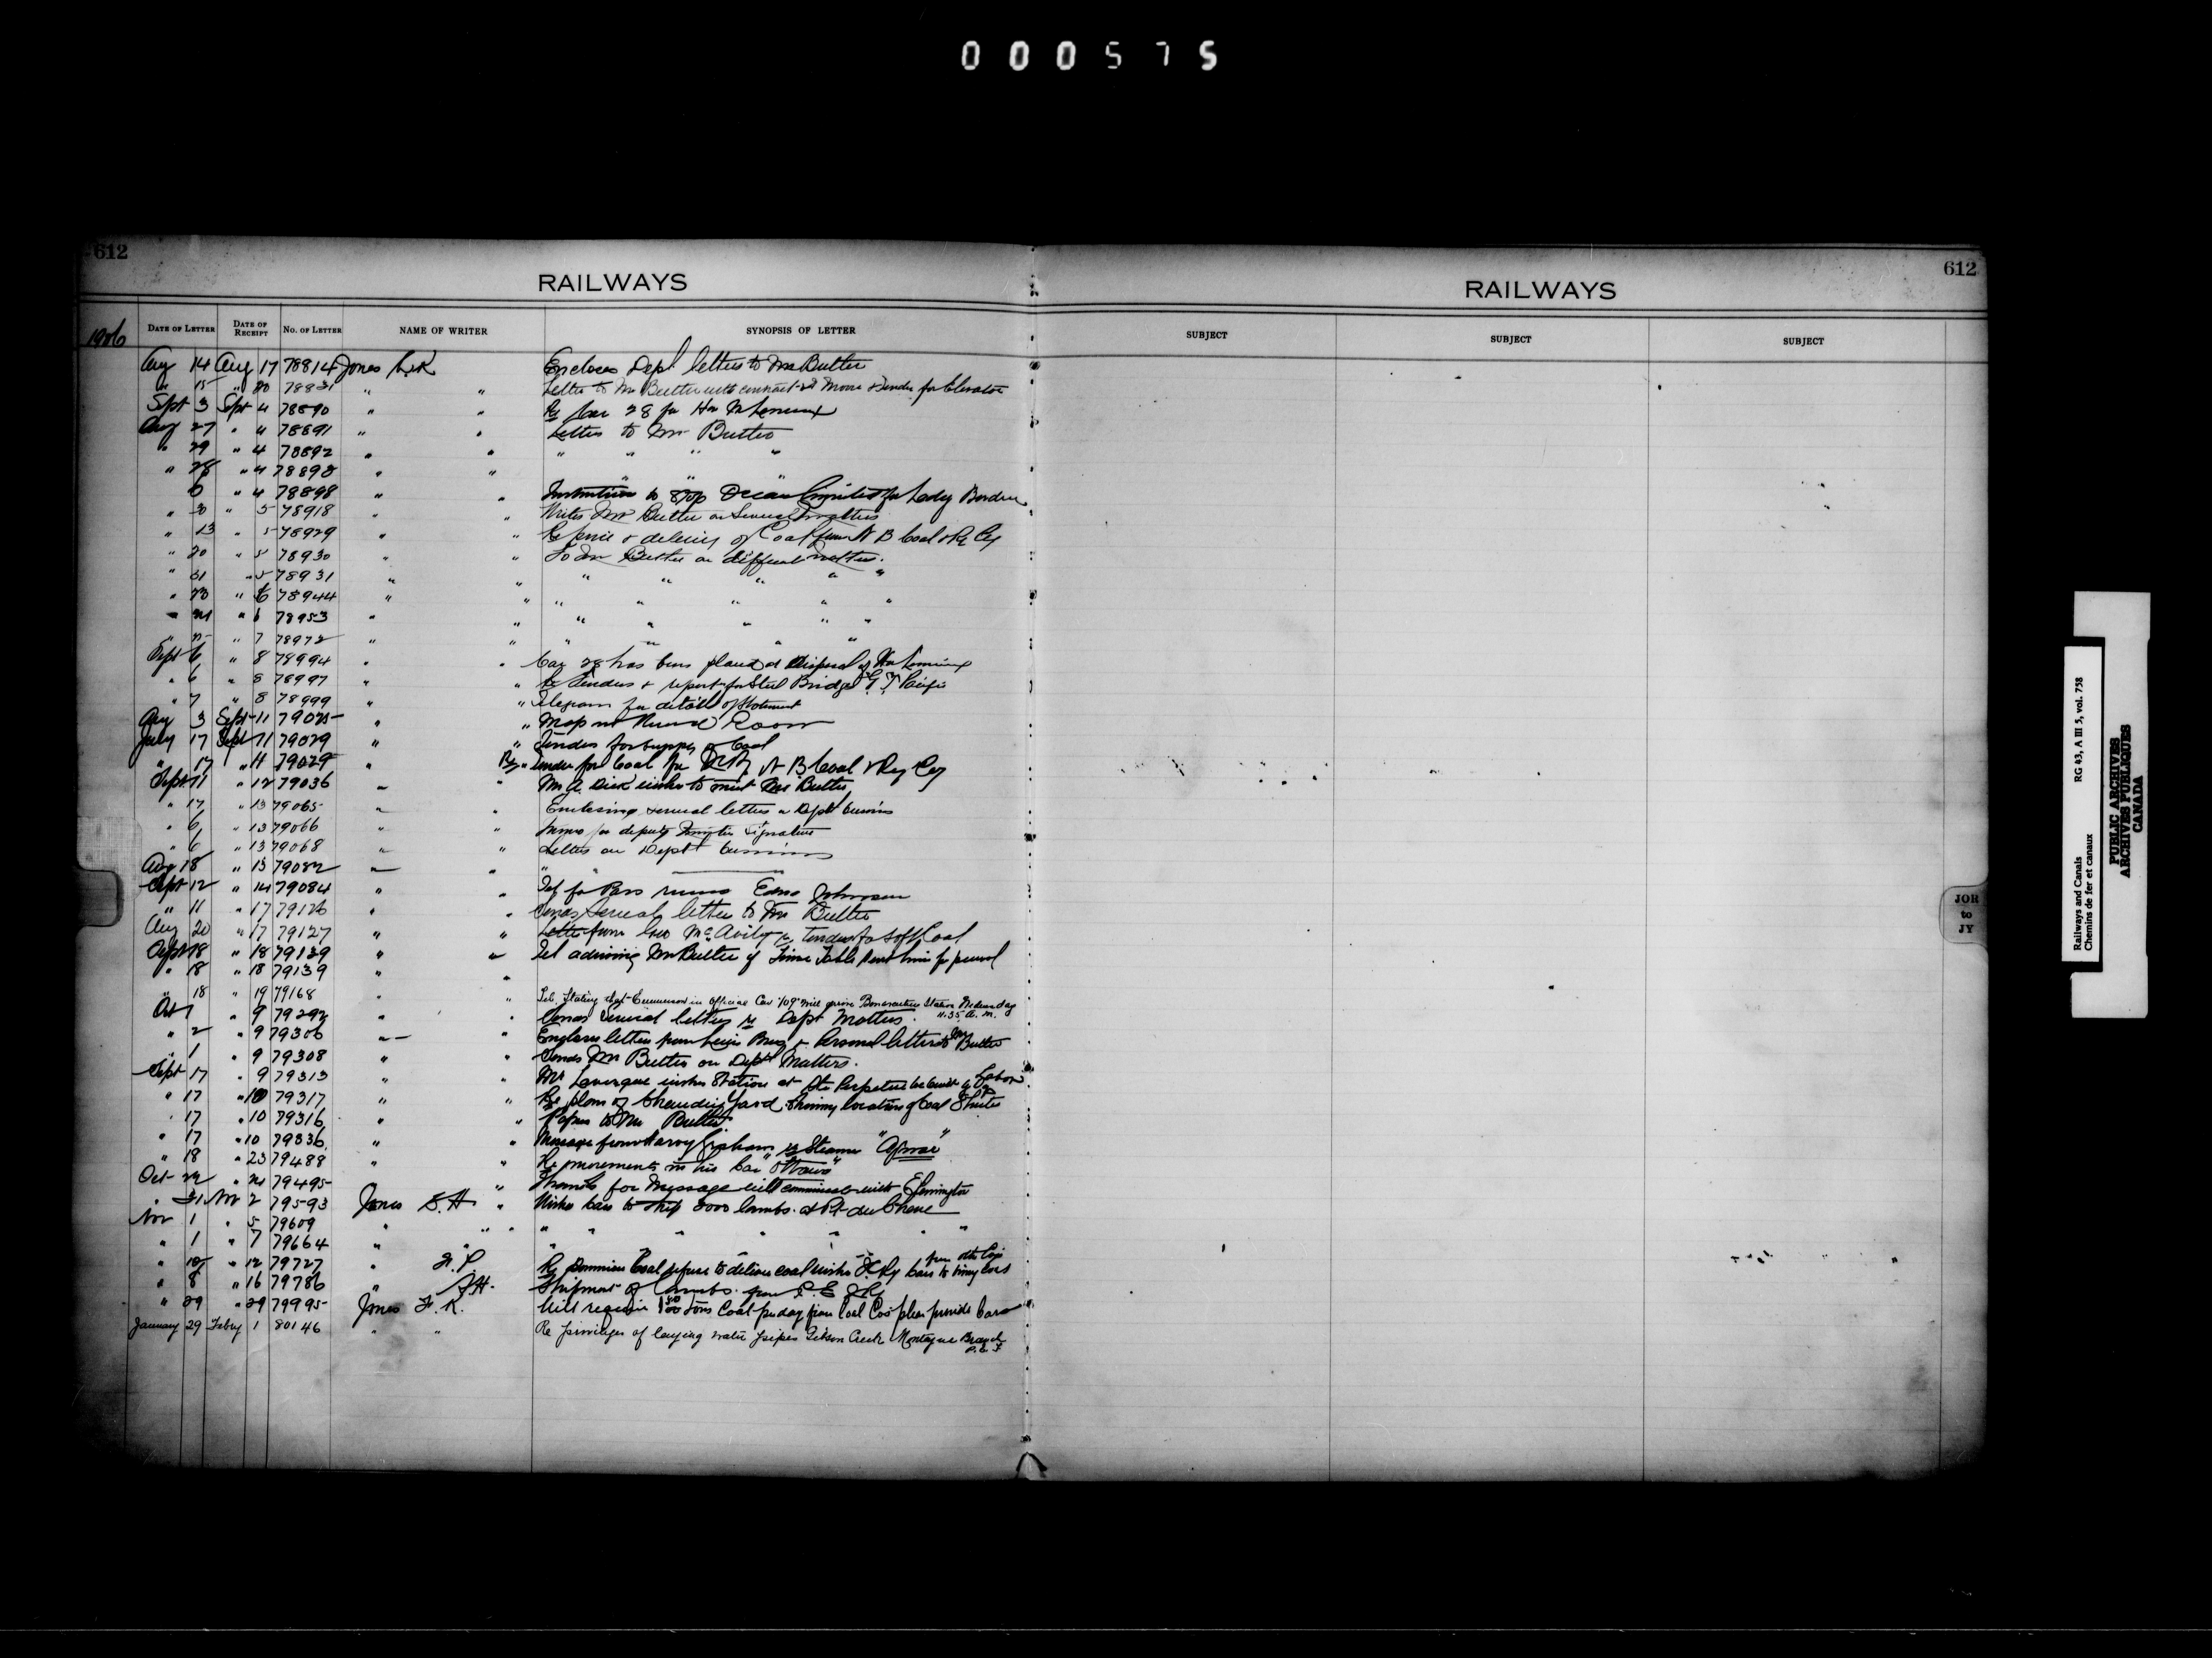 000575
612
612
RAILWAYS
RAILWAYS
1906
DATE OF LETTER DATE OF RECEIPT NO. OF LETTER NAME OF WRITER SYNOPSIS OF LETTER
SUBJECT SUBJECT SUBJECT
Aug 14 Aug 17 78814 Jones Encloses Dept letters to Mr Butler
" 15 " 20 78831 " " Letter to Mr Butler with contract
Sept 3 Sept 4 78890 " " Re Car 28 for Hon
Aug 27 " 4 78891 " " Letter to Mr Butler
" 29 " 4 78892 " " " " " "
" 28 " 4 78893 " "
" 4 78898 " " Instructions to stop Ocean Limited for Lady Borden
" 30 " 5 78918 " " Writes Mr Butler on Several matters
" 13 " 5 78929 " " Re price & delivery of Coal from N B Coal & Ry Co
" 20 " 5 78930 " " To Mr Butler on different matters.
" 31 " 5 78931 " " " " " " "
" 23 " 6 78944 " " " " " " "
" 6 78953 " " " " " " "
" 7 78972 " " " " " "
Sept 6 " 8 78994 " " Car 28 has been placed at Disposal of Hon
" 6 " 8 78997 " " Re Tenders & report for Steel Bridges G T Pacific
" 7 " 8 78999 " " Telegram for details of statement
Aug 3 Sept 11 79025 " " Map
July 17 Sept 11 79029 " " Tenders for supply of Coal
" 17 " 11 79029 " Re " Tender for Coal for ICRy N B Coal & Ry Coy
Sept 11 " 12 79036 " " Mr A. Dick wishes to meet Mr Butler
" 12 " 13 79065 " " Enclosing several letters on Dept business
" 6 " 13 79066 " " Memo for deputy Minister Signature
" 6 " 13 79068 " " Letters on Dept business
Aug 18 " 13 79082 " " "
Sept 12 " 14 79084 " " Tel for Pass Edna Johnson
" 11 " 17 79126 " " Sends Several letters to Mr Butler
Aug 20 " 17 79127 " " Letter from Geo McAvity re Tender for soft Coal
Sept 18 " 18 79139 " " Tel advising Mr Butler of Time Table sent him for perusal
" 18 " 18 79139 " "
" 18 " 19 79168 " " Tel. Stating that Emmerson in Official Car "109" will arrive Bonaventure Station Wednesday 11.35 a.m.
Oct 1 " 9 79292 " " Sends Several letters re Dept Matters.
" 2 " 9 79306 " " Encloses letters from & Personal letters to Mr Butler
" 1 " 9 79308 " " Sends Mr Butler on Dept Matters.
Sept 17 " 9 79313 " " Mr Lavergne wishes Station at Ste Perpetue be built
" 17 " 10 79317 " " Re plans of Chaudiere Yard. Showing location of Coal Shutes
" 17 " 10 79316 " " Papers to Mr Butler
" 17 " 10 79336 " " Message from Harry Graham re Steamer
" 18 " 23 79488 " " Re movements in his Car "Ottawa"
Oct 22 " 24 79495 " Thanks for Message will communicate with
" 31 Nov 2 79593 Jones S. H " Wishes cars to ship 3000 lambs. at Pt du Chene
Nov 1 " 5 79609 " " " " " " " "
" 1 " 7 79664 " " " " "
" 10 " 12 79727 " Re Dominion Coal refuse to deliver coal wishes ICRy cars to bring coal from other Coys
" 8 " 16 79786 " Shipment of Lambs. from P. E I Ry
" 29 " 29 79995 Jones F. R. Will require tons Coal per day from Coal Cos please provide Cars
January 29 Febry 1 80146 " " Re privileges of laying water pipes Creek Montague Branch P.E.I
JOR
to
JY
Railways and Canals RG 43, A III 5, vol. 758
Chemins de fer et canaux
PUBLIC ARCHIVES
ARCHIVES PUBLIQUES
CANADA